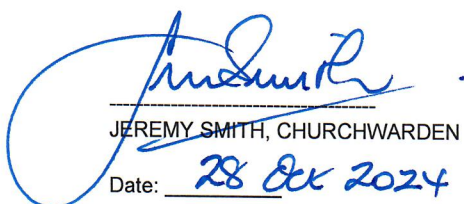 JEREMY SMITH, CHURCHWARDEN
Date: 28 Oct 2024